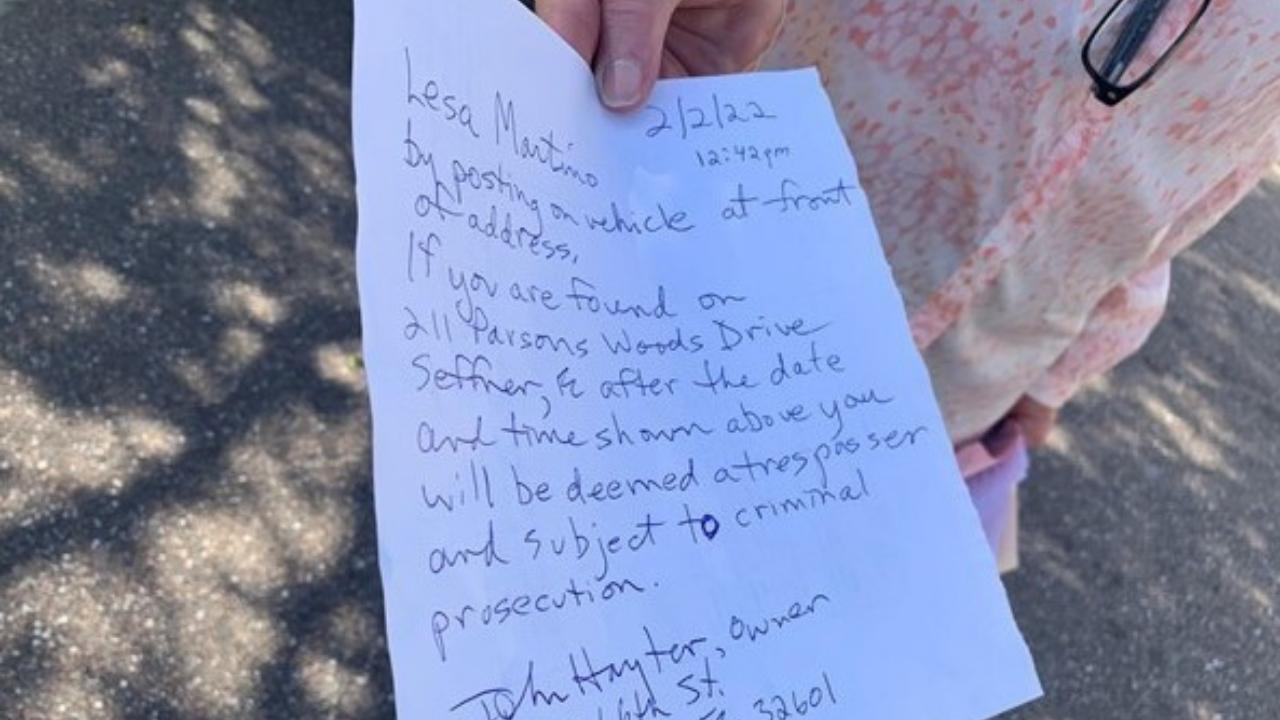 Lesa Martino
2/2/22
12:42pm
by posting on vehicle at front
of address,
If you are found on
211 Parsons Woods Drive
Seffner, FL after the date
and time shown above you
will be deemed a trespasser
and subject to criminal
prosecution.
John Hayter, Owner
16th St.
32601